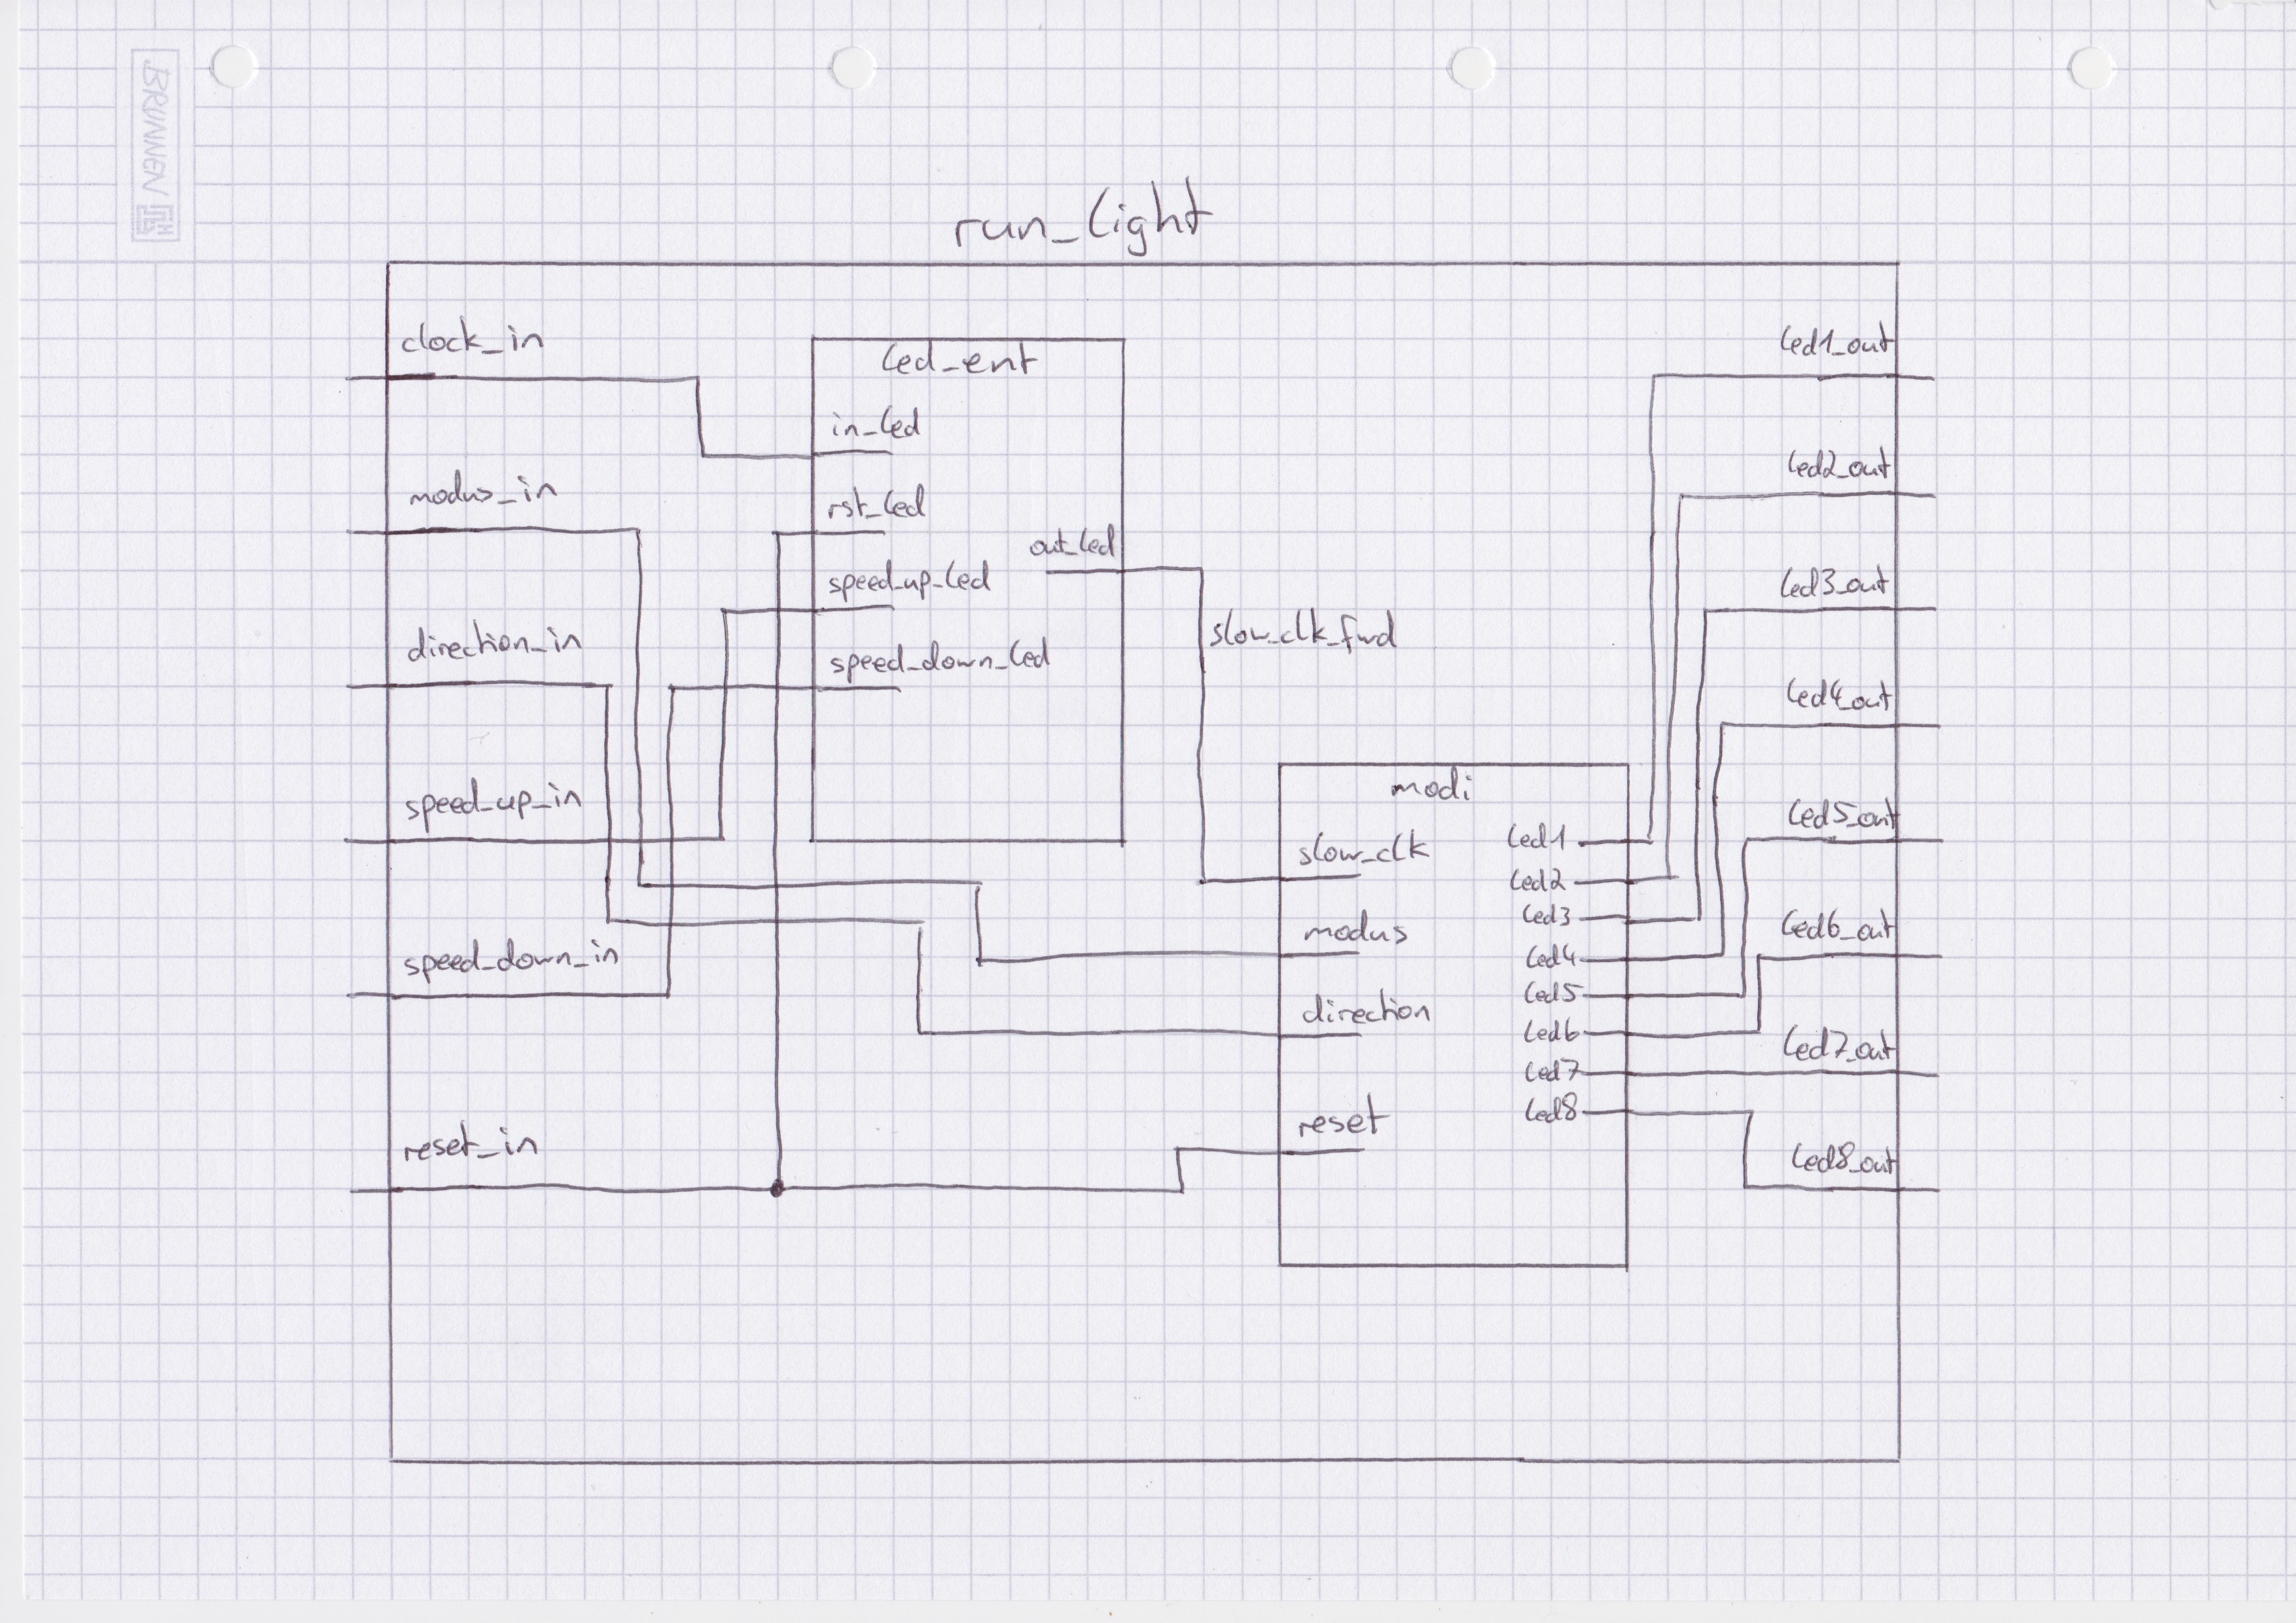 BRUNNEN
run_light
clock_in
modus_in
direction_in
speed_up_in
speed_down_in
reset_in
led_ent
in_led
rst_led
speed_up_led
speed_down_led
out_led
slow_clk_fwd
modi
slow_clk
modus
direction
reset
led1
led2
led3
led4
led5
led6
led7
led8
led1_out
led2_out
led3_out
led4_out
led5_out
led6_out
led7_out
led8_out